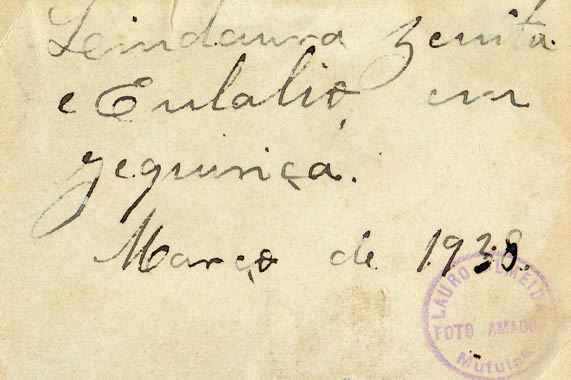 Leindaura Zenita
e Eulalio, em
Jequiriçá.
Março de 1938.
LAURO ALMEIDA
FOTO AMADOR
Mutuipe